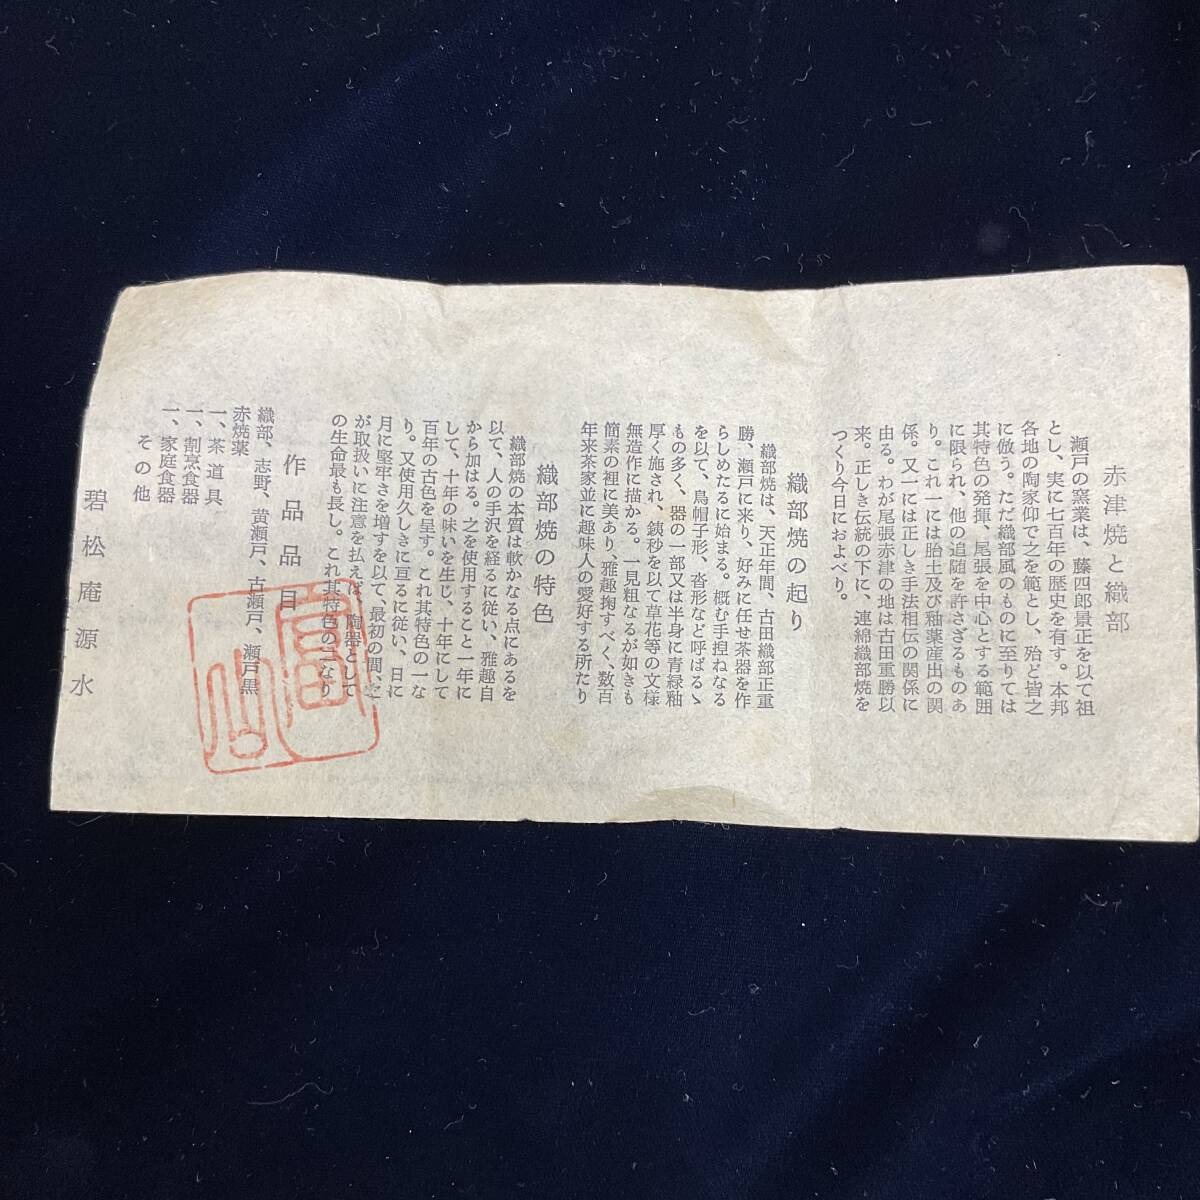 赤津焼と織部
瀬戸の窯業は、藤四郎景正を以て祖
とし、実に七百年の歴史を有す。本邦
各地の陶家仰で之を範とし、殆ど皆之
に倣う。ただ織部風のものに至りては
其特色の発揮、尾張を中心とする範囲
に限られ、他の追随を許さざるものあ
り。これ一には胎土及び釉薬産出の関
係。又一には正しき手法相伝の関係に
由る。わが尾張赤津の地は古田重勝以
来。正しき伝統の下に、連綿織部焼を
つくり今日におよべり。
織部焼の起り
織部焼は、天正年間、古田織部正重
勝、瀬戸に来り、好みに任せ茶器を作
らしめたるに始まる。概む手捏ねなる
を以て、烏帽子形、沓形など呼ばるゝ
もの多く、器の一部又は半身に青緑釉
厚く施され、銕秒を以て草花等の文様
無造作に描かる。一見粗なるが如きも
簡素の裡に美あり、雅趣掬すべく、数百
年来茶家並に趣味人の愛好する所たり
織部焼の特色
織部焼の本質は軟かなる点にあるを
以て、人の手沢を経るに従い、雅趣自
から加はる。之を使用すること一年に
して、十年の味いを生じ、十年にして
百年の古色を呈す。これ其特色の一な
り。又使用久しきに亘るに従い、日に
月に堅牢さを増すを以て、最初の間、之
が取扱いに注意を払えば、陶器として
の生命最も長し。これ其特色の二なり
作品品目
織部、志野、黄瀬戸、古瀬戸、瀬戸黒
赤焼薬
一、茶道具
一、割烹食器
一、家庭食器
その他
碧松庵源水